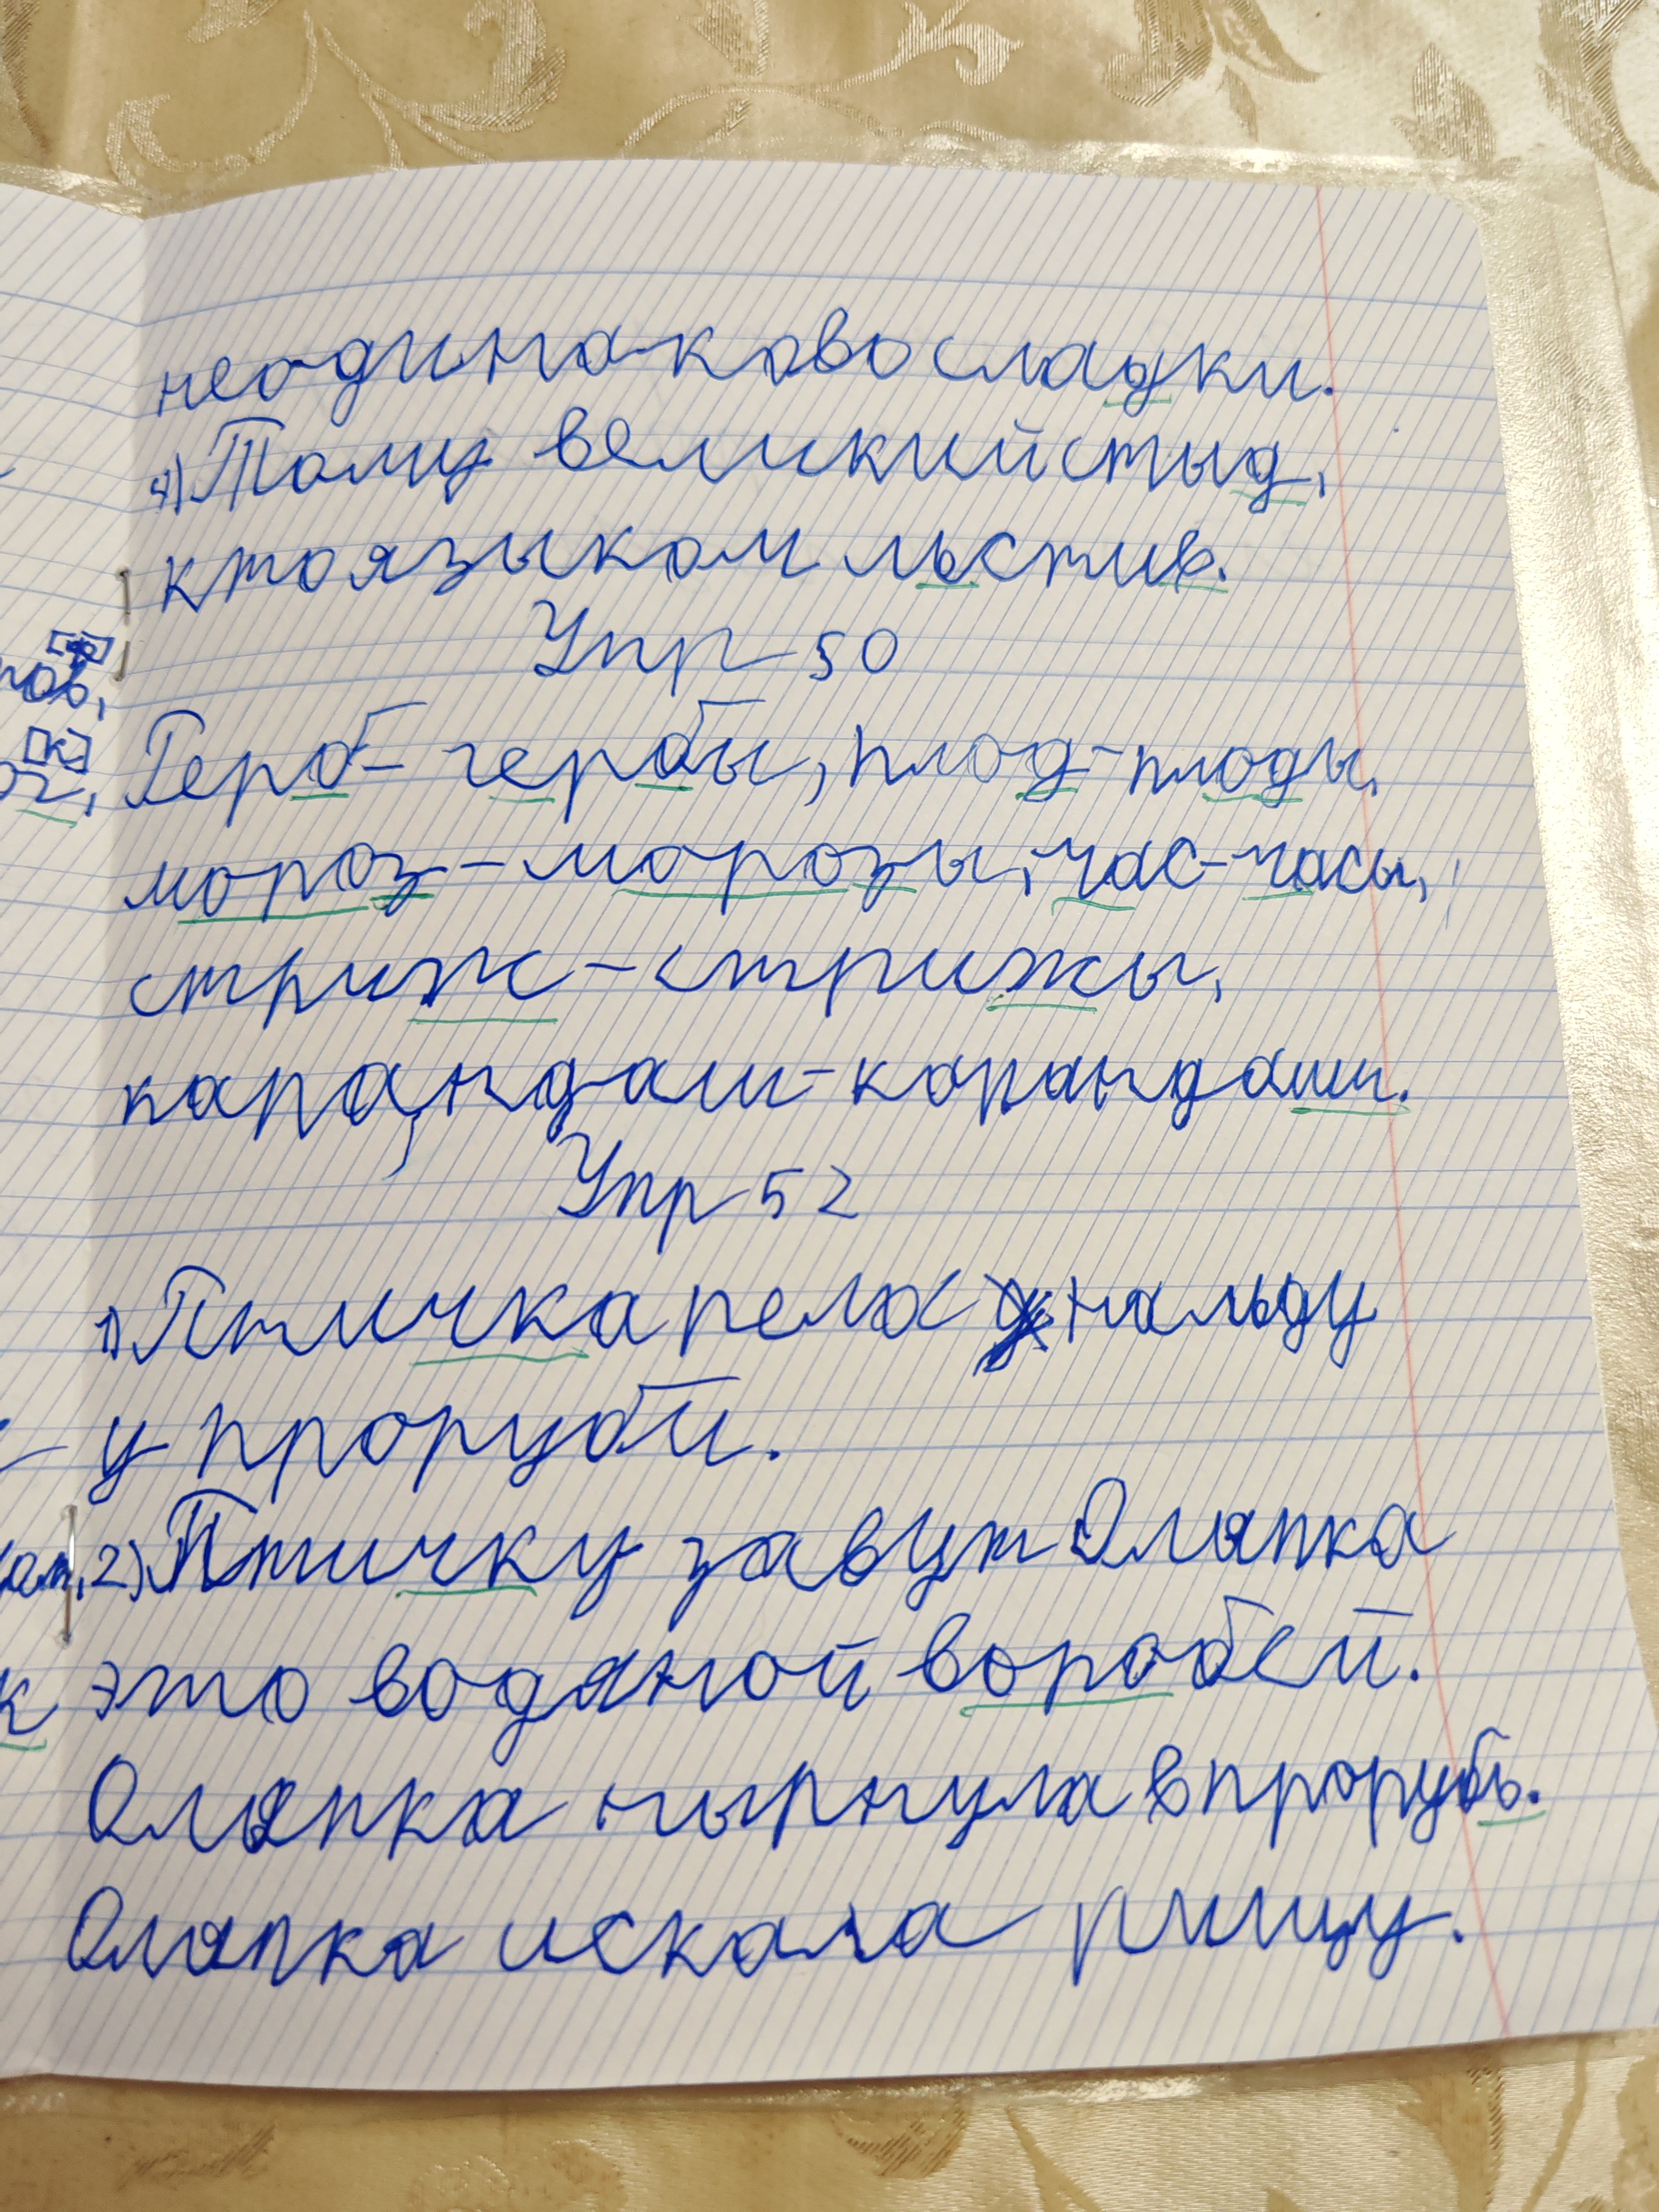 неодинаково сладки.
4) Тому великий стыд,
кто языком льстив.
Упр 50
[ф]
[к]
Герб - гербы, плод - плоды,
мороз - морозы, час - часы,
стриж - стрижы,
карандаш - карандаши.
Упр 52
1) Птичка пела на льду
у проруби.
2) Птичку завут Оляпка
это водяной воробей.
Оляпка нырнула в прорубь.
Оляпка искала пищу.